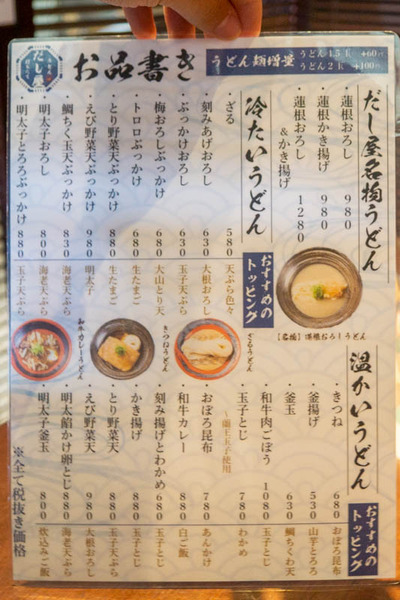 だし屋
お品書き
うどん麺増量
うどん1.5玉 +60円
うどん2玉 +100円
だし屋名物うどん
・蓮根おろし 980
・蓮根かき揚げ 980
・蓮根おろし&かき揚げ 1280
【名物】蓮根おろしうどん
冷たいうどん
おすすめのトッピング
・ざる 580 天ぷら色々
・刻みあげおろし 630 大根おろし
・ぶっかけおろし 630 玉子天ぷら
・梅おろしぶっかけ 680 大山とり天
・トロロぶっかけ 680 生たまご
・とり野菜天ぶっかけ 880 生たまご
・えび野菜天ぶっかけ 980 明太子
・鯛ちく玉天ぶっかけ 830 海老天ぷら
・明太子おろし 800 海老天ぷら
・明太子とろろぶっかけ 880 玉子天ぷら
ざるうどん
きつねうどん
和牛カレーうどん
温かいうどん
おすすめのトッピング
・きつね 680 おぼろ昆布
・釜揚げ 530 山芋とろろ
・釜玉 630 鯛ちくわ天
・和牛肉ごぼう 1080 玉子とじ
・玉子とじ 〜蘭王玉子使用 780 わかめ
・おぼろ昆布 780 あんかけ
・和牛カレー 880 白ご飯
・刻み揚げとわかめ 680 玉子とじ
・かき揚げ 880 玉子とじ
・とり野菜天 880 玉子天ぷら
・えび野菜天 980 大根おろし
・明太餡かけ卵とじ 880 海老天ぷら
・明太子釜玉 800 炊込みご飯
※全て税抜き価格